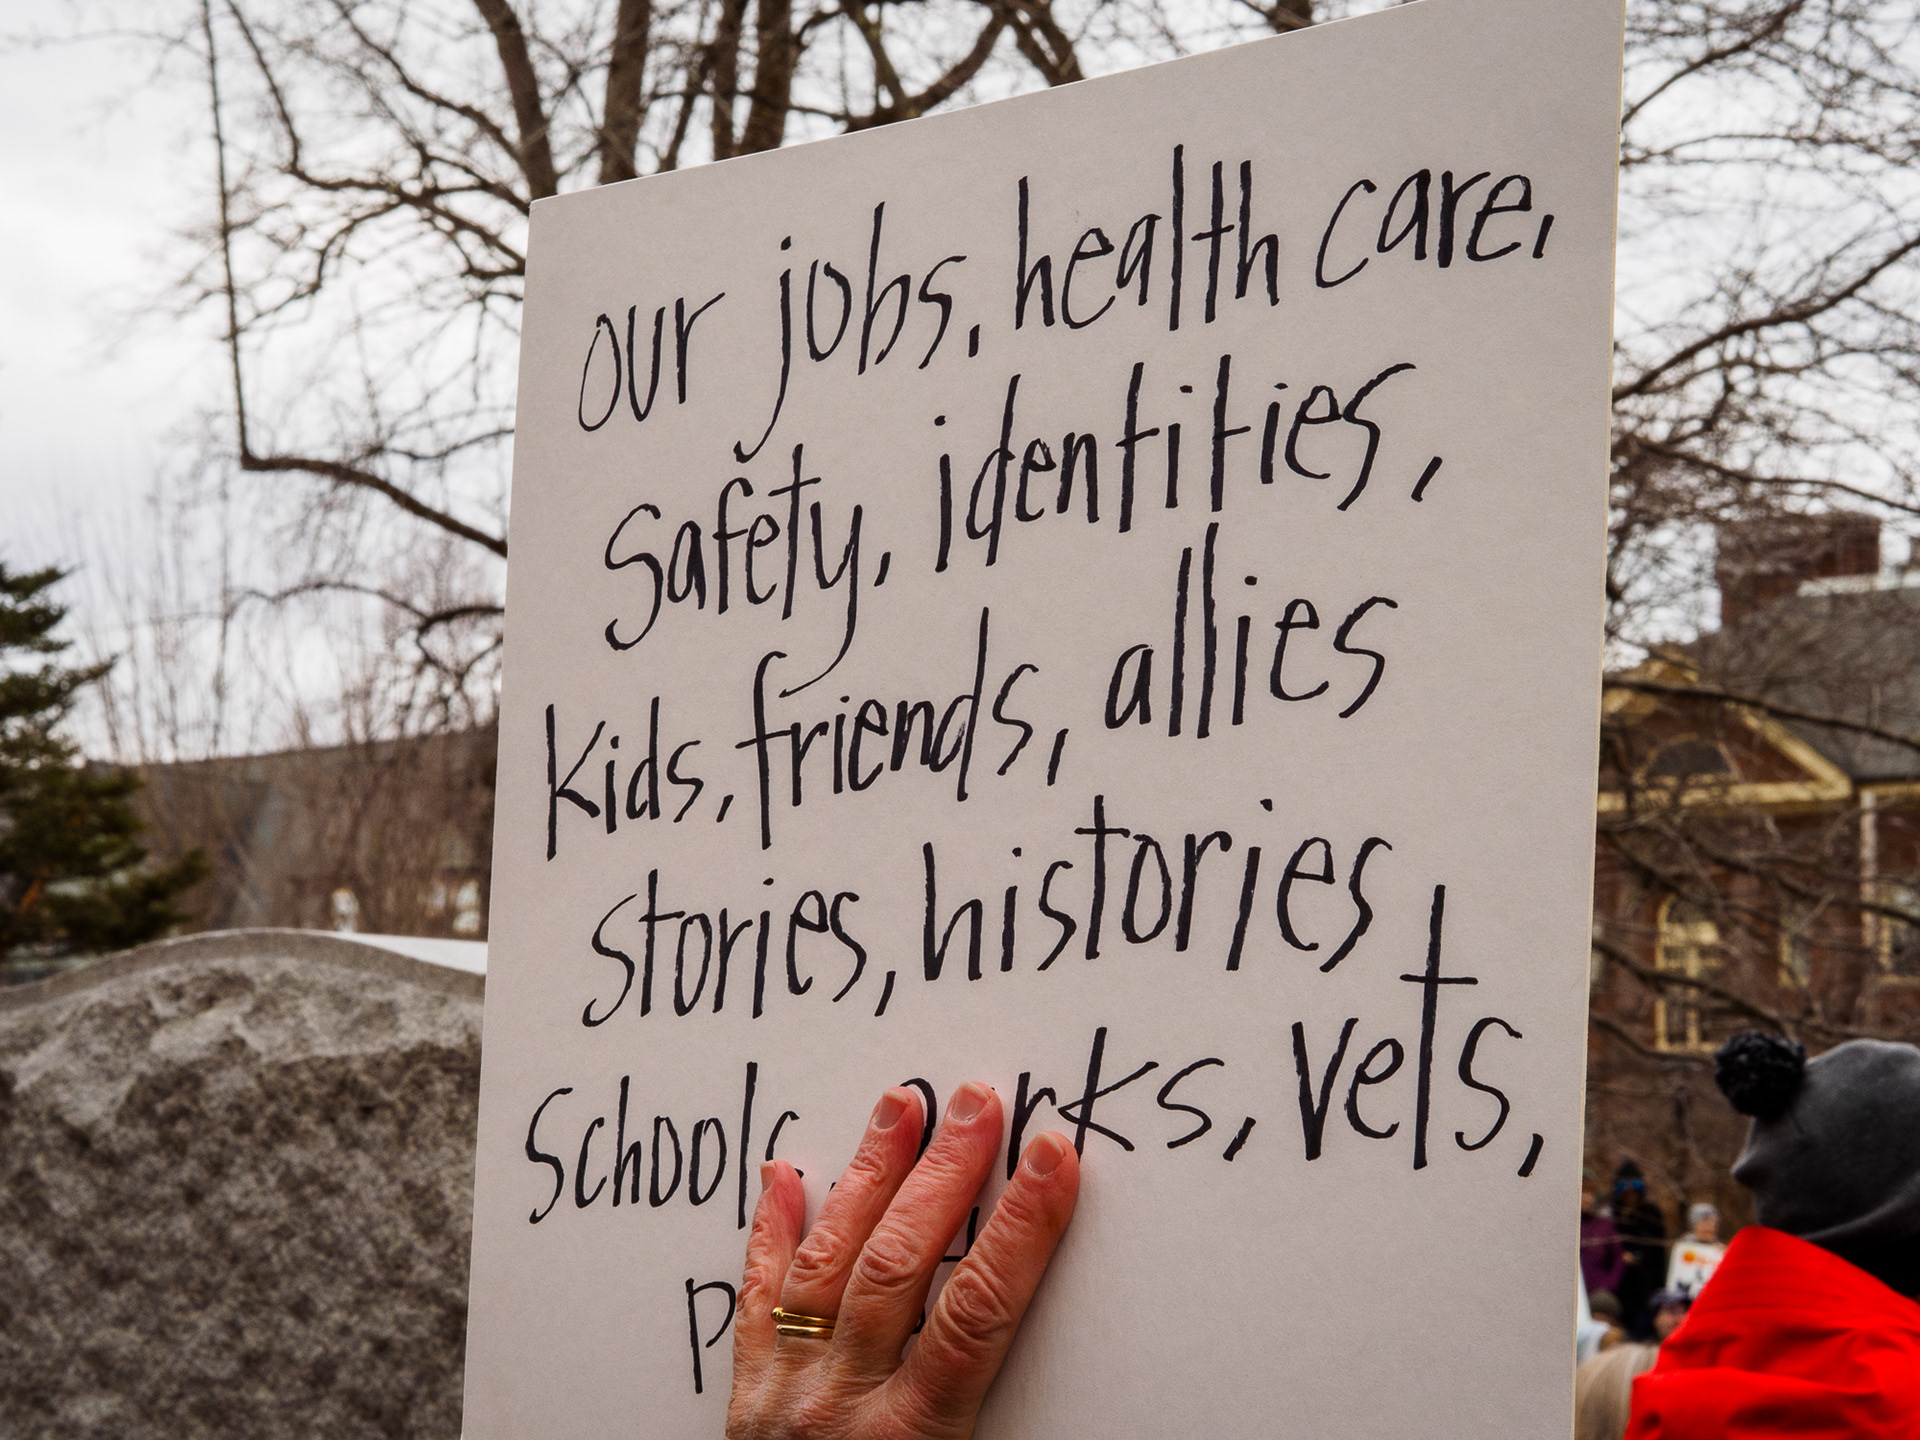 our jobs, health care,
safety, identities,
kids, friends, allies
stories, histories
schools, parks, vets,